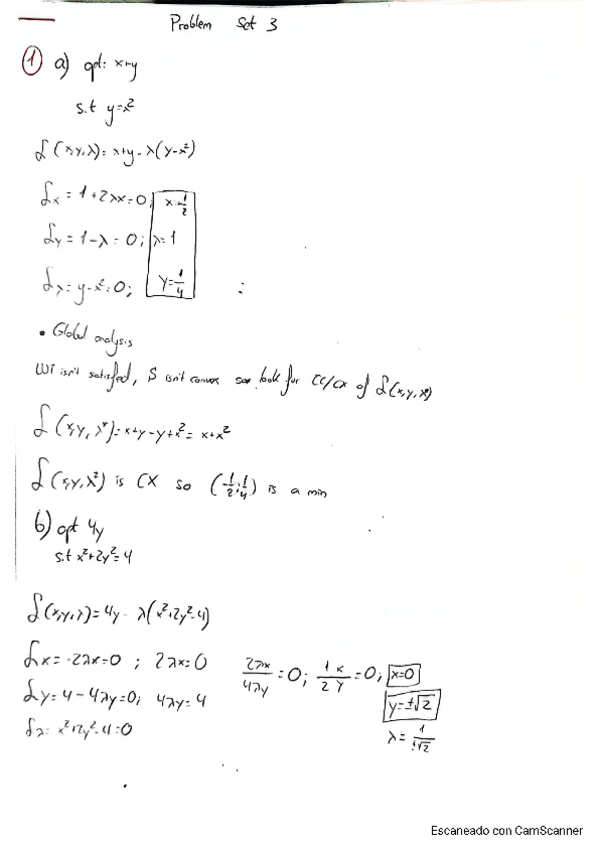 Problem Set 3
① a) opt: x+y
s.t y=x²
L(x,y,λ)=x+y-λ(y-x²)
Lx = 1+2λx=0; x=-1/2
Ly = 1-λ=0; λ=1
Lλ=y-x²=0; y=1/4
• Global analysis
WT isn't satisfied, S isn't convex so look for CC/CX of L(x,y,λ*)
L(x,y,λ*)=x+y-y+x²=x+x²
L(x,y,λ²) is CX so (-1/2;1/4) is a min
b) opt 4y
s.t x²+2y²=4
L(x,y,λ)=4y-λ(x²+2y²-4)
Lx=-2λx=0 ; 2λx=0 2λx/4λy=0; 1/2 x/y=0; x=0
Ly=4-4λy=0; 4λy=4 y=±√2
Lλ= x²+2y²-4=0 λ=1/±√2
Escaneado con CamScanner